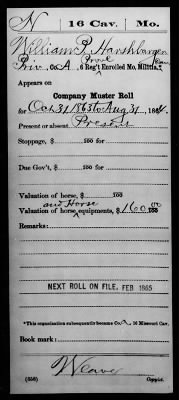 N | 16 Cav. | Mo.
William P. Harshbarger
Priv., Co. A, 6 Prov'l Reg't Enrolled Mo. Militia.*
Appears on
Company Muster Roll
for Oct 31, 1863 to Aug 31, 1864.
Present or absent, Present
Stoppage, $ 100 for
Due Gov't, $ 100 for
Valuation of horse, $ 100
and Horse
Valuation of horse equipments, $ 160.00
Remarks:
NEXT ROLL ON FILE, FEB 1865
*This organization subsequently became Co. A, 16 Missouri Cav.
Book mark:
Weaver
(656) Copyist.